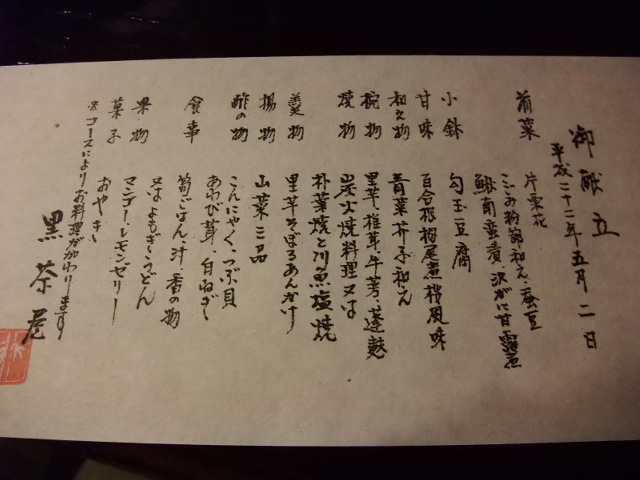 御献立
平成二十二年五月二日
前菜 片栗花
こごみ粉節和え・蚕豆
南蛮漬・沢がに甘露煮
小鉢 勾玉豆腐
甘味 百合根梅尾煮桜風味
和え物 青菜芥子和え
椀物 里芋・椎茸・牛芳・蓬麩
焼物 炭火焼料理又は
朴葉焼と川魚塩焼
羹物 里芋そぼろあんかけ
揚物 山菜三品
酢の物 こんにゃく・つぶ貝
あわび茸・白ねぎ
食事 筍ごはん・汁・香の物
又はよもぎうどん
果物 マンゴー・レモンゼリー
菓子 おやき
※コースによりお料理が加わります
黒茶屋